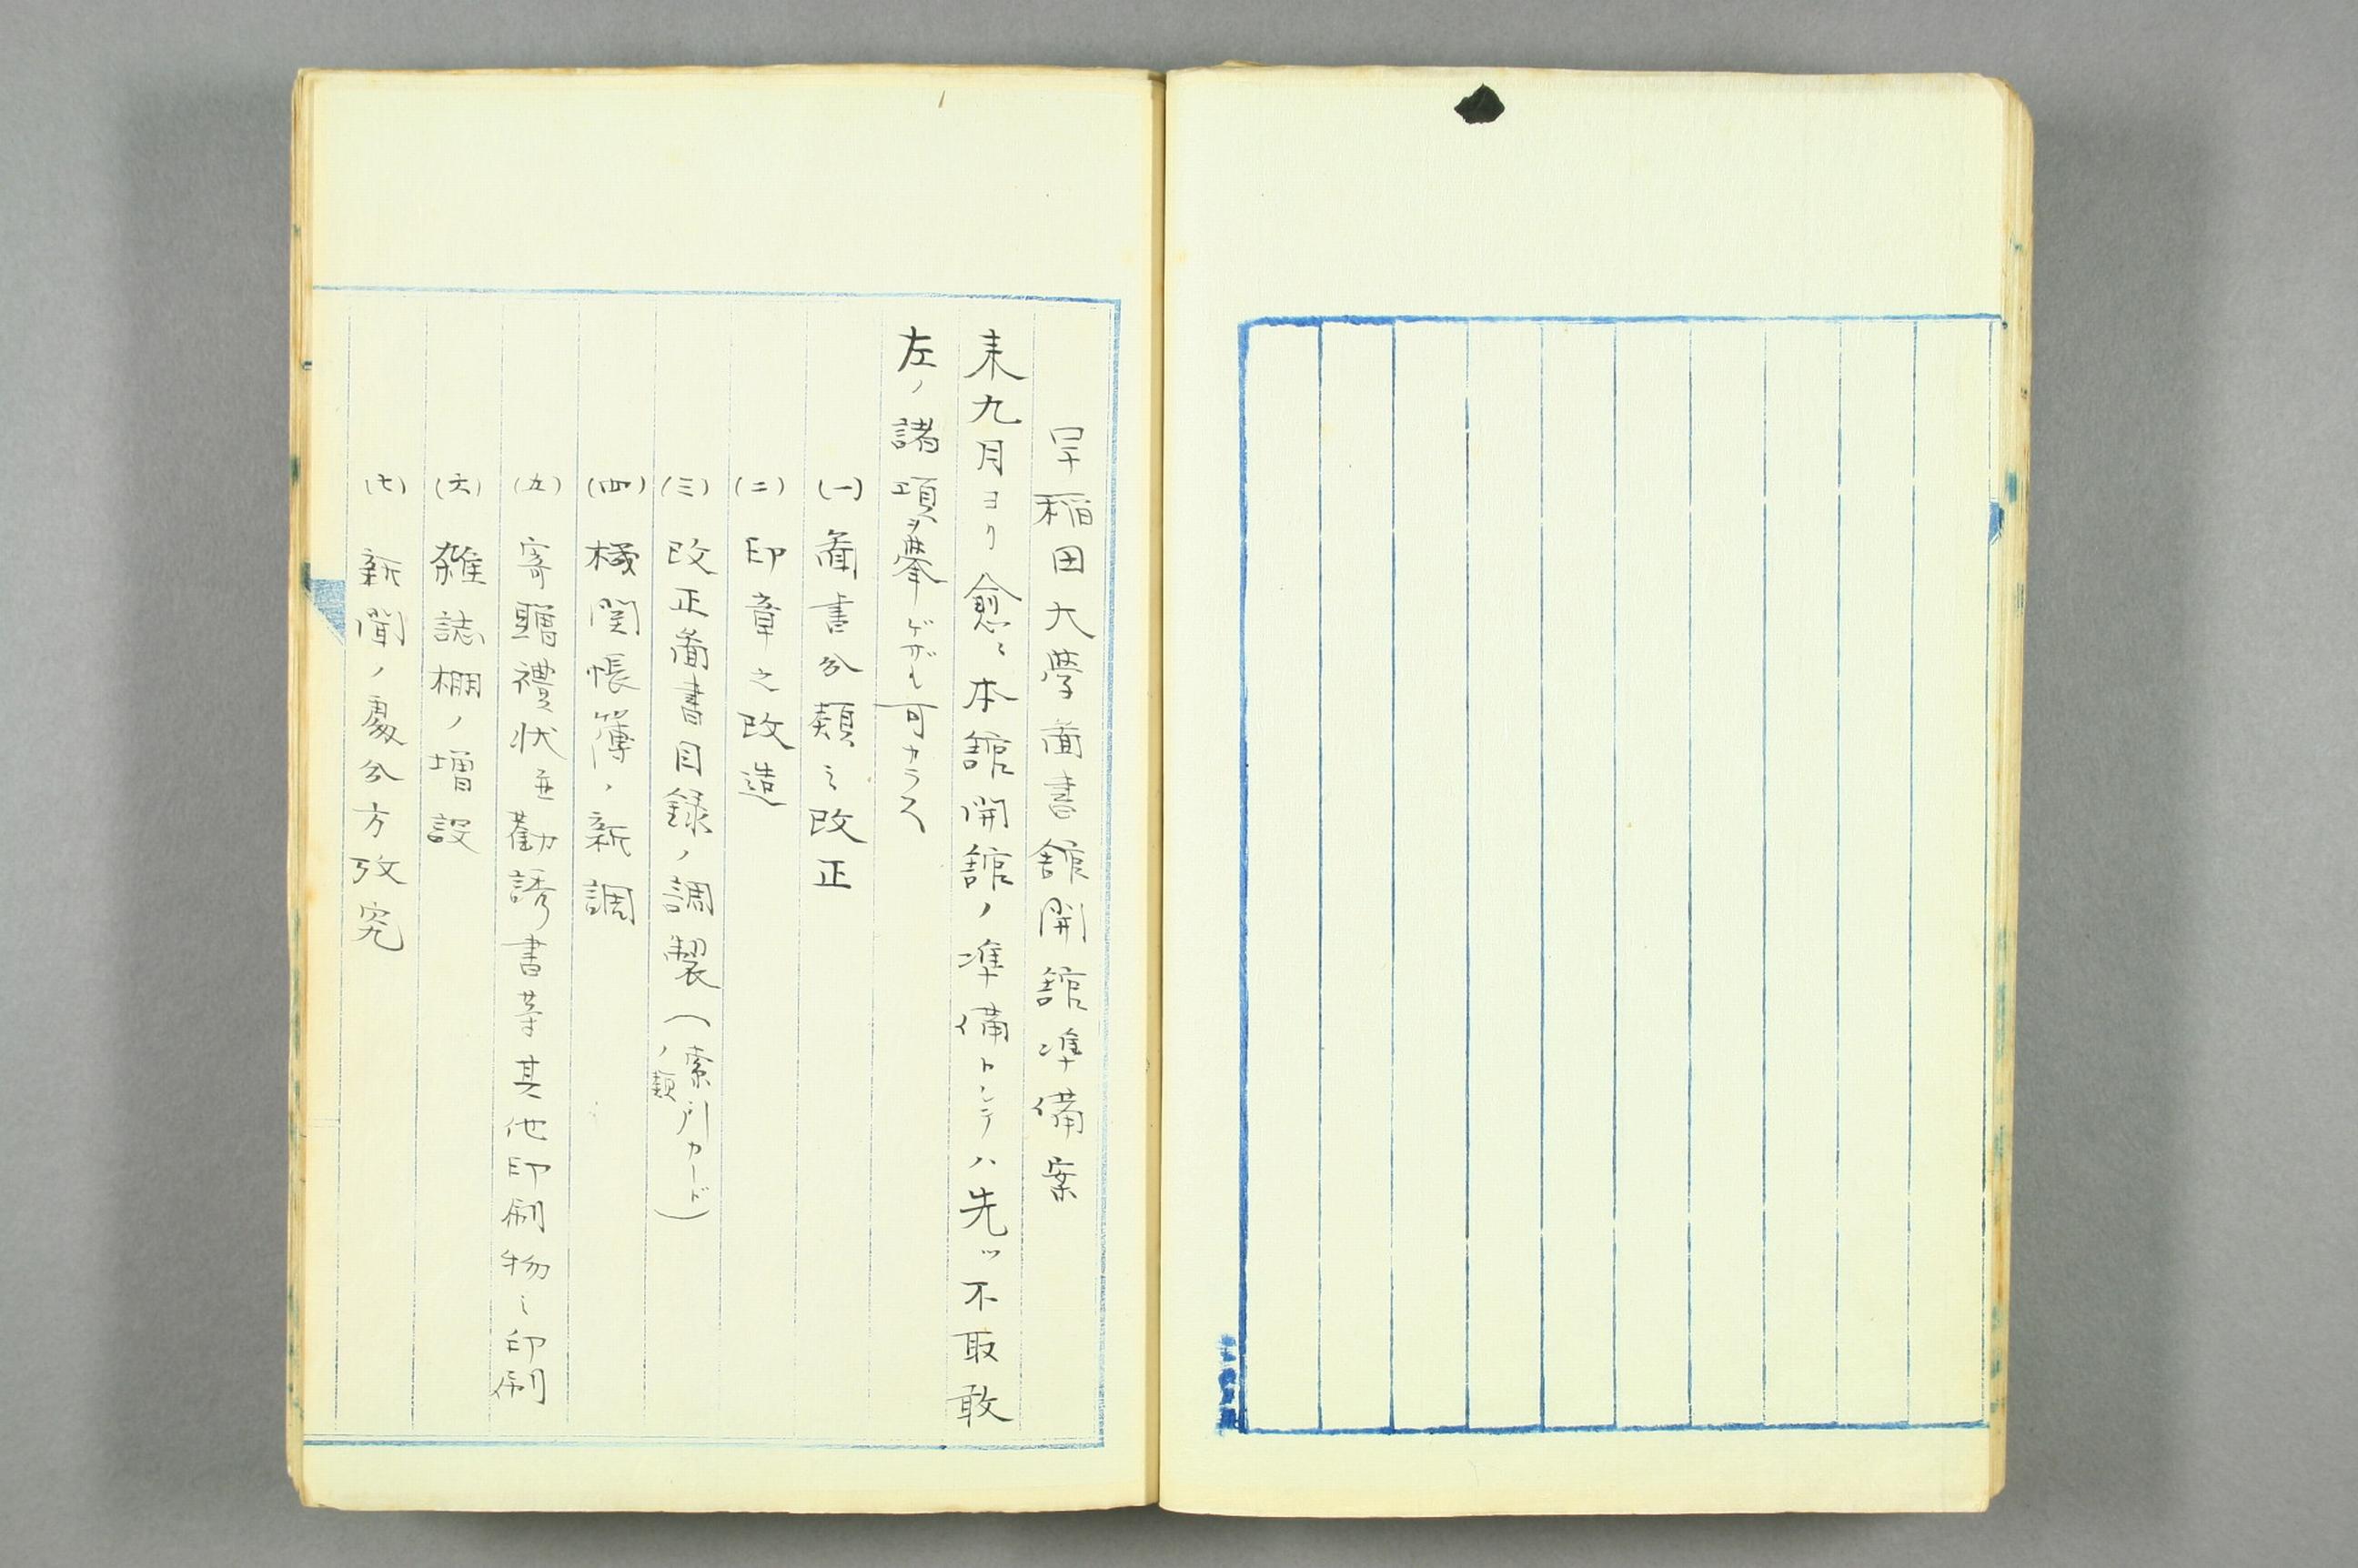 早稲田大學圖書舘開舘準備案
来九月ヨリ愈々本舘開舘ノ準備トシテハ先ツ不取敢
左ノ諸項ヲ擧ゲザル可カラス
(一) 圖書分類之改正
(二) 印章之改造
(三) 改正圖書目録ノ調製（索引カード
ノ類）
(四) 機関帳簿ノ新調
(五) 寄贈禮状並勸誘書等其他印刷物之印刷
(六) 雑誌棚ノ増設
(七) 新聞ノ處分方攷究